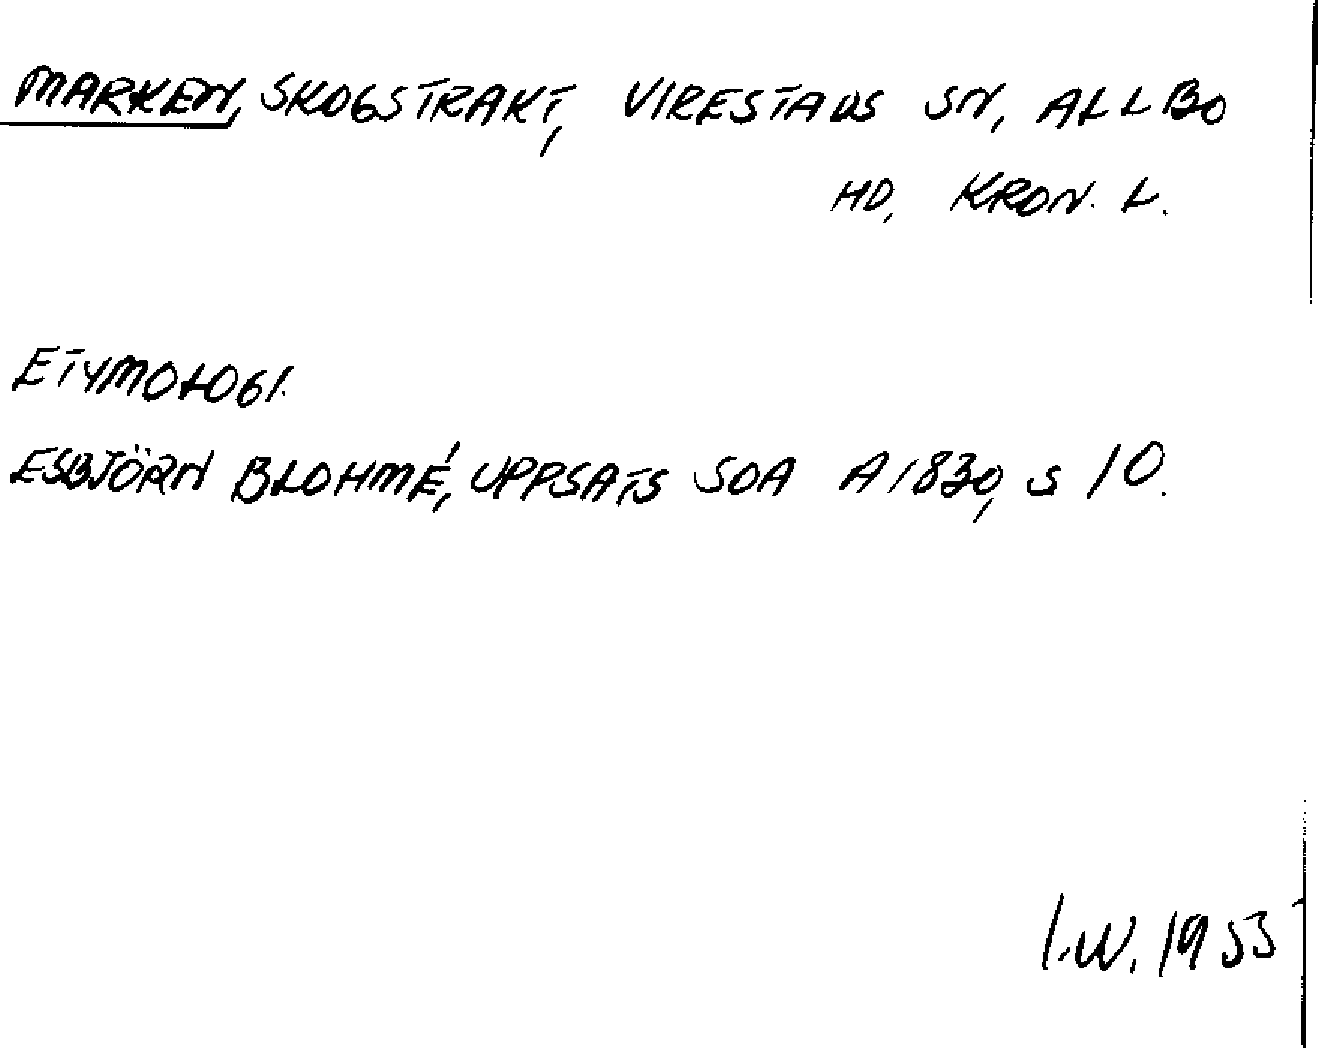 MARKEN, SKOGSTRAKT, VIRESTADS SN, ALLBO
HD, KRON. L.
ETYMOLOGI.
ESBJÖRN BLOHMÉ, UPPSATS SOA A1830, S 10.
I.W. 1953